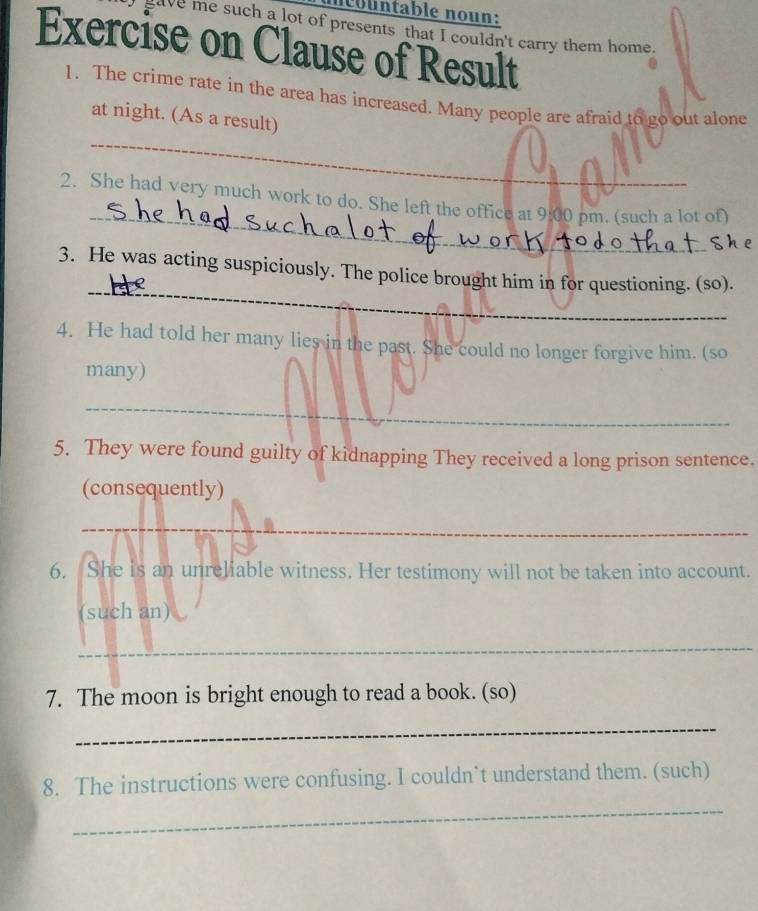 gave me such a lot of presents that I couldn't carry them home.
Exercise on Clause of Result
1. The crime rate in the area has increased. Many people are afraid to go out alone
at night. (As a result)
2. She had very much work to do. She left the office at 9:00 pm. (such a lot of)
She had such a lot of work to do that she
3. He was acting suspiciously. The police brought him in for questioning. (so).
He
4. He had told her many lies in the past. She could no longer forgive him. (so
many)
5. They were found guilty of kidnapping They received a long prison sentence.
(consequently)
6. She is an unreliable witness. Her testimony will not be taken into account.
(such an)
7. The moon is bright enough to read a book. (so)
8. The instructions were confusing. I couldn't understand them. (such)
Mrs. Mona Gamil